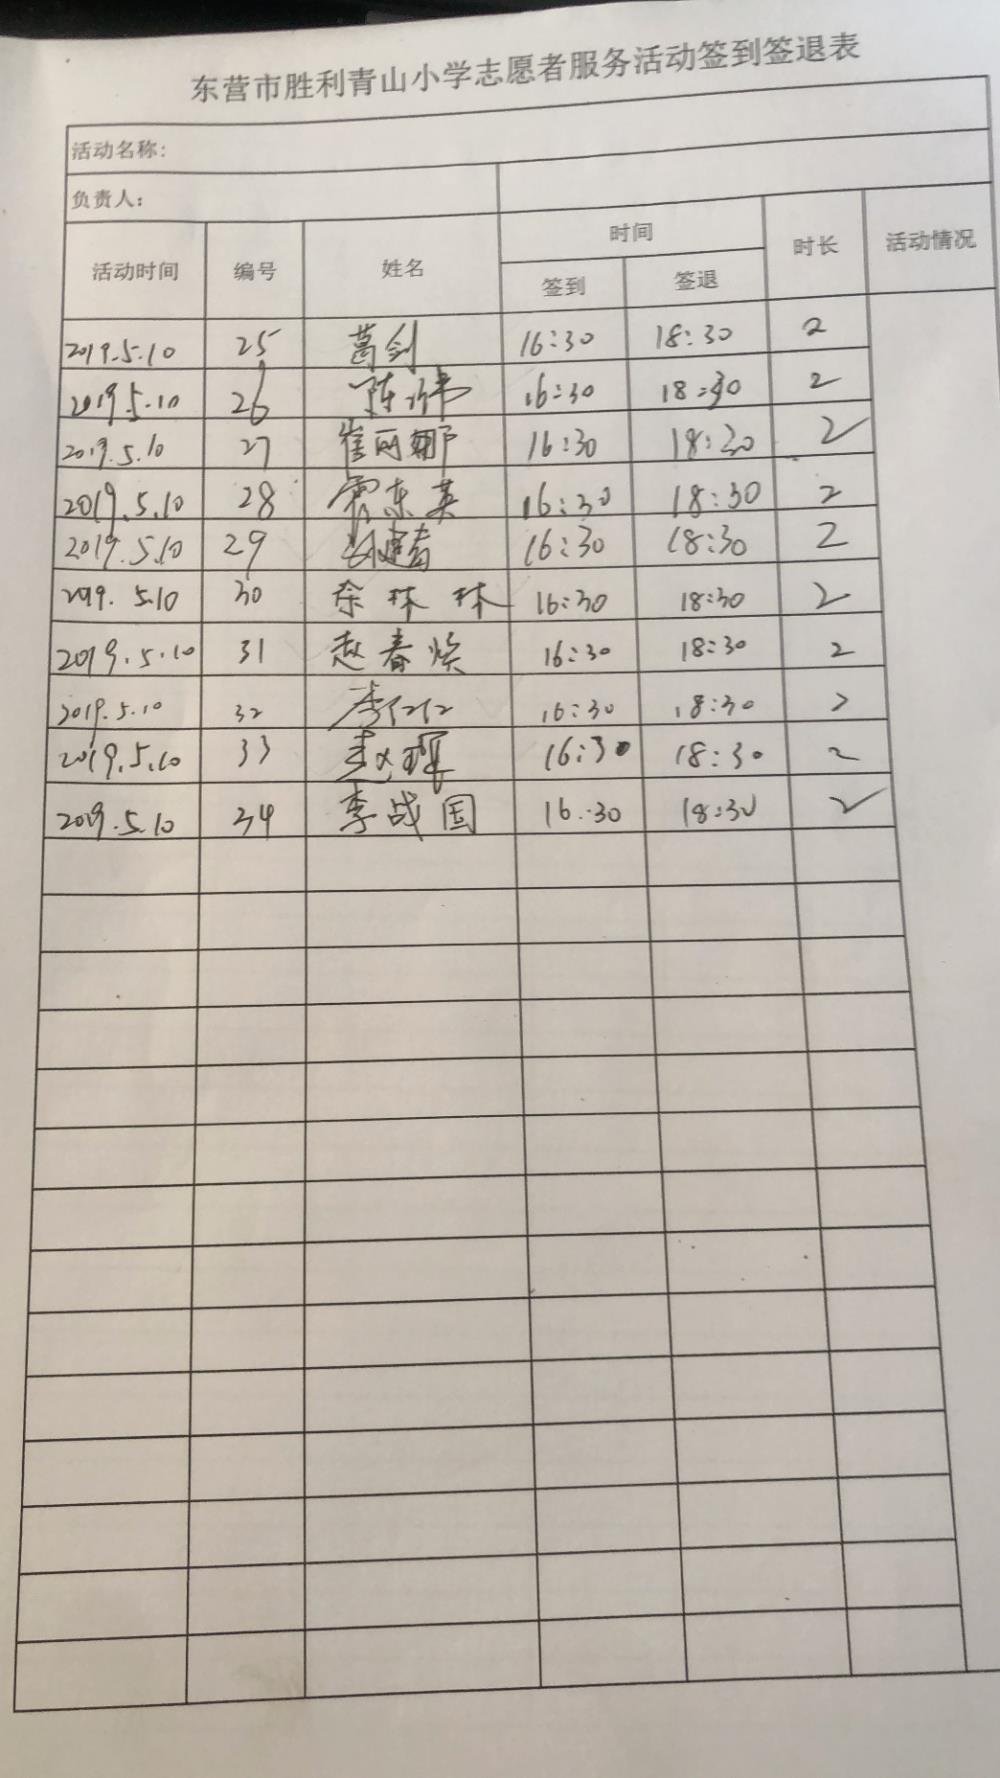 东营市胜利青山小学志愿者服务活动签到签退表
活动名称:
负责人:
活动时间 编号 姓名 时间 时长 活动情况
签到 签退
2019.5.10 25 葛剑 16:30 18:30 2
2019.5.10 26 陈 16:30 18:30 2
2019.5.10 27 崔丽娜 16:30 18:30 2
2019.5.10 28 东英 16:30 18:30 2
2019.5.10 29 16:30 18:30 2
2019.5.10 30 林林 16:30 18:30 2
2019.5.10 31 赵春焕 16:30 18:30 2
2019.5.10 32 李 16:30 18:30 2
2019.5.10 33 16:30 18:30 2
2019.5.10 34 李战国 16:30 18:30 2